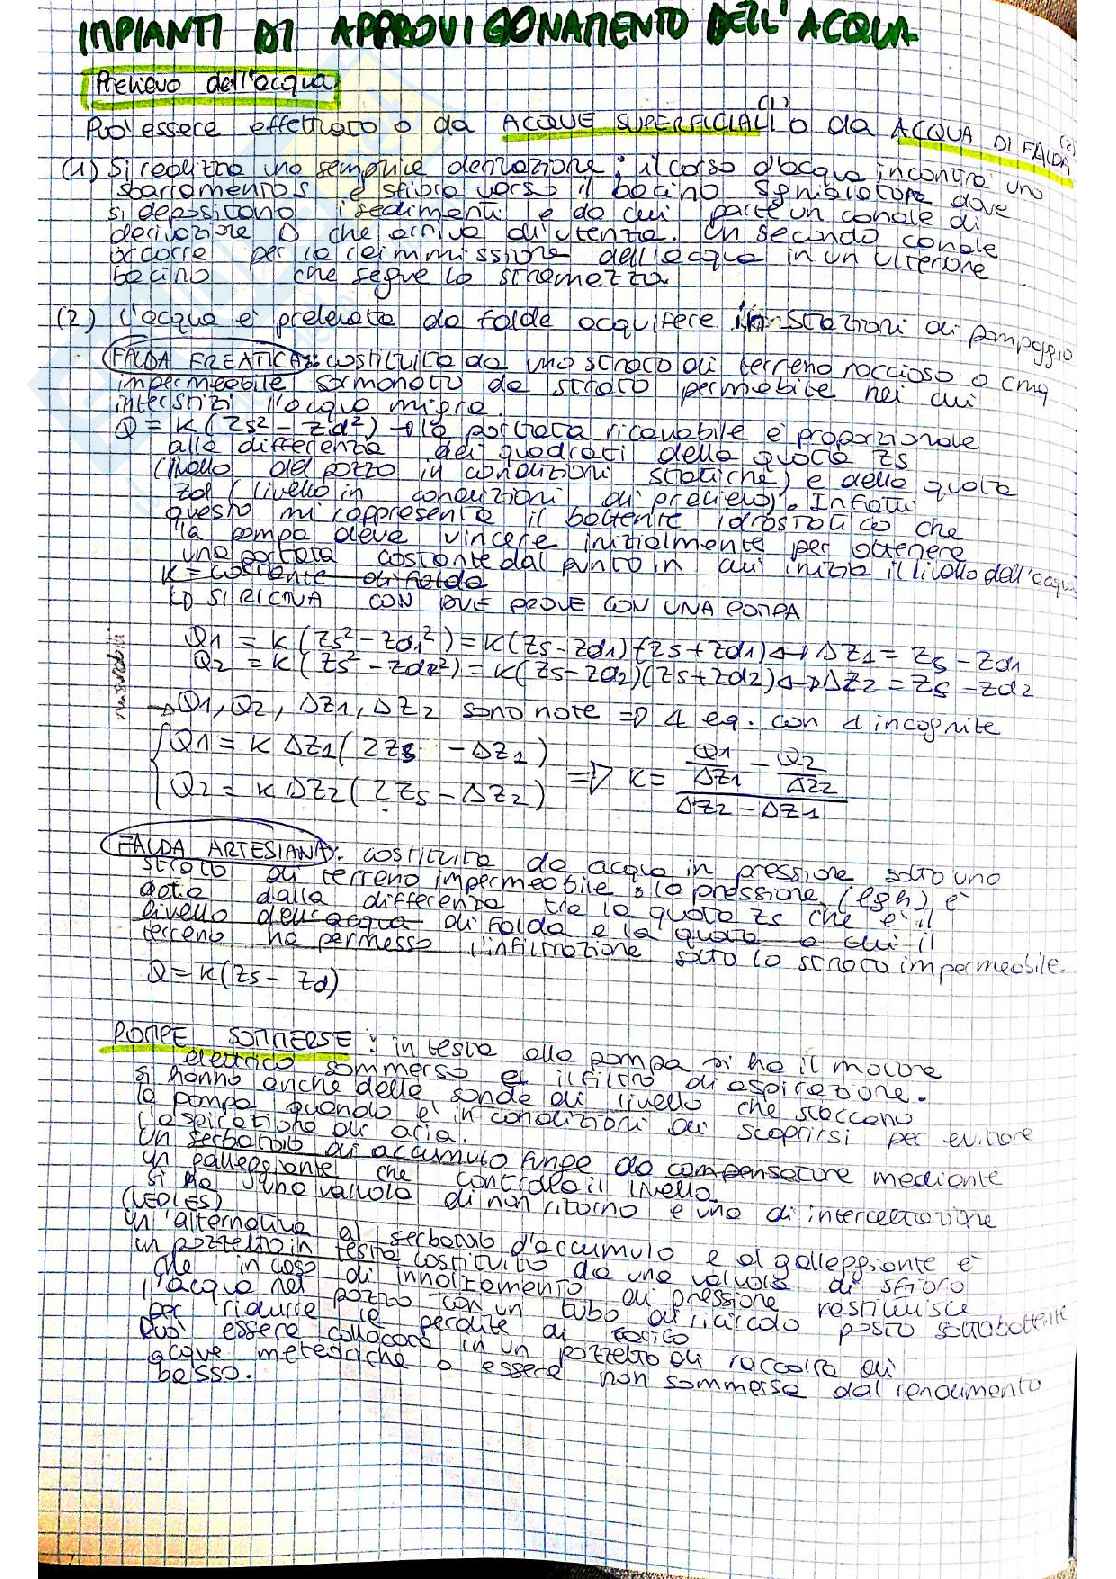 IMPIANTI DI APPROVIGIONAMENTO DELL'ACQUA
Prelievo dell'acqua
Può essere effettuato o da ACQUE SUPERFICIALI (1) o da ACQUA DI FALDA (2)
(1) Si realizza una semplice derivazione: il corso d'acqua incontra uno
sbarramento S e sfiora verso il bacino sghiaiatore dove
si depositano i sedimenti e da cui parte un canale di
derivazione D che arriva all'utenza. Un secondo canale
occorre per la reimmissione dell'acqua in un ulteriore
bacino che segue lo stramazzo.
(2) L'acqua è prelevata da falde acquifere in stazioni di pompaggio
FALDA FREATICA: costituita da uno strato di terreno roccioso o cmq
impermeabile sormonato da strato permeabile nei cui
interstizi l'acqua migra.
Q = K (Zs² - Zd²) → la portata ricavabile è proporzionale
alla differenza dei quadrati della quota Zs
(livello del pozzo in condizioni statiche) e della quota
Zd (livello in condizioni di prelievo). Infatti
questo mi rappresenta il battente idrostatico che
la pompa deve vincere inizialmente per ottenere
una portata costante dal punto in cui inizia il livello dell'acqua
K = costante di falda
↳ SI RICAVA CON DUE PROVE CON UNA POMPA
Q1 = K (Zs² - Zd1²) = K (Zs - Zd1) (Zs + Zd1) ↔ ΔZ1 = Zs - Zd1
Q2 = K (Zs² - Zd2²) = K (Zs - Zd2) (Zs + Zd2) ↔ ΔZ2 = Zs - Zd2
→ Q1, Q2, ΔZ1, ΔZ2 sono note ⇒ 4 eq. con 4 incognite
{Q1 = K ΔZ1 (2Zs - ΔZ1)
Q2 = K ΔZ2 (2Zs - ΔZ2) ⇒ K = (Q1/ΔZ1 - Q2/ΔZ2) / (ΔZ2 - ΔZ1)
FALDA ARTESIANA: costituita da acqua in pressione sotto uno
strato di terreno impermeabile, la pressione (ρgh) è
data dalla differenza tra la quota Zs che è il
livello dell'acqua di falda e la quota a cui il
terreno ha permesso l'infiltrazione sotto lo strato impermeabile.
Q = K (Zs - Zd)
POMPE SOMMERSE: in testa alla pompa si ha il motore
elettrico sommerso e il filtro di aspirazione.
Si hanno anche delle sonde di livello che staccano
la pompa quando è in condizioni di scoprirsi per evitare
l'aspirazione di aria.
Un serbatoio di accumulo funge da compensatore mediante
un galleggiante che controlla il livello.
Si ha una valvola di non ritorno e una di intercettazione
Un'alternativa al serbatoio d'accumulo e al galleggiante è
un pozzetto in testa costituito da una valvola di sfioro
che in caso di innalzamento di pressione restituisce
l'acqua nel pozzo con un tubo di ricircolo posto sottobattente
per ridurre le perdite di carico
Può essere collocata in un pozzetto di raccolta di
acque meteoriche o essere non sommersa dal rendimento
basso.